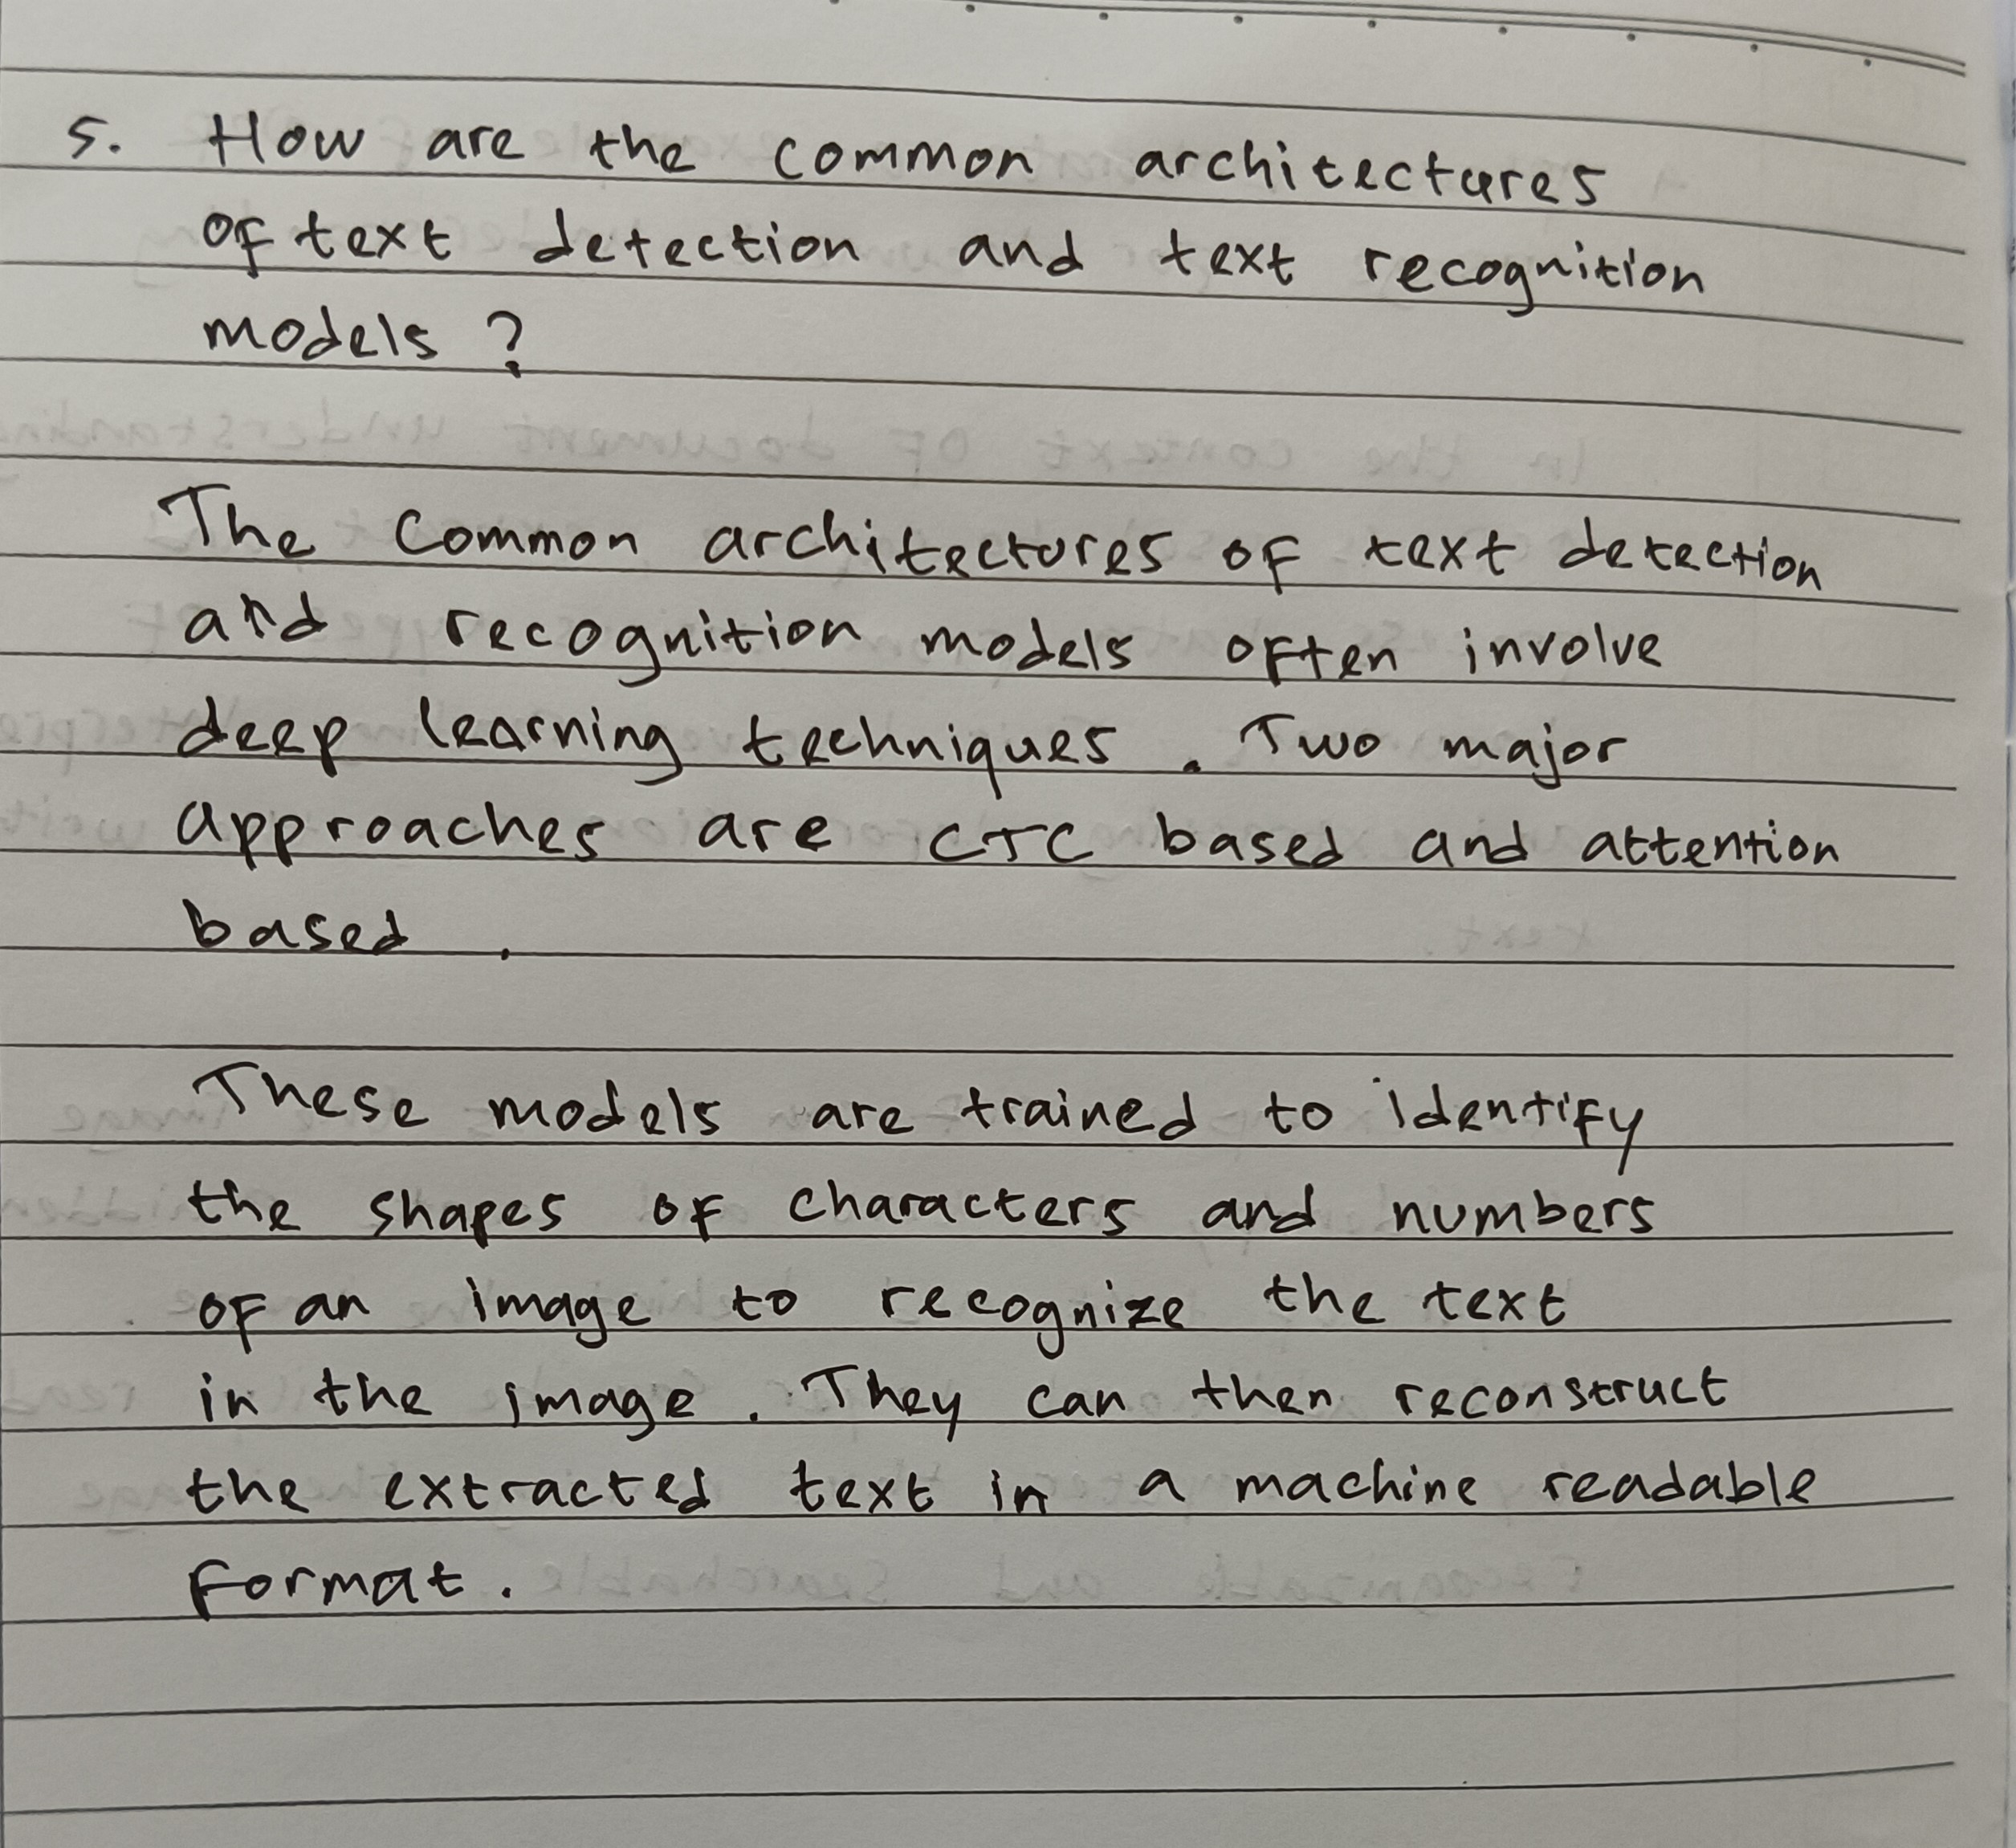 5. How are the common architectures
of text detection and text recognition
models ?
The Common architectures of text detection
and recognition models often involve
deep learning techniques . Two major
approaches are CTC based and attention
based .
These models are trained to identify
the shapes of characters and numbers
of an image to recognize the text
in the image . They can then reconstruct
the extracted text in a machine readable
format .